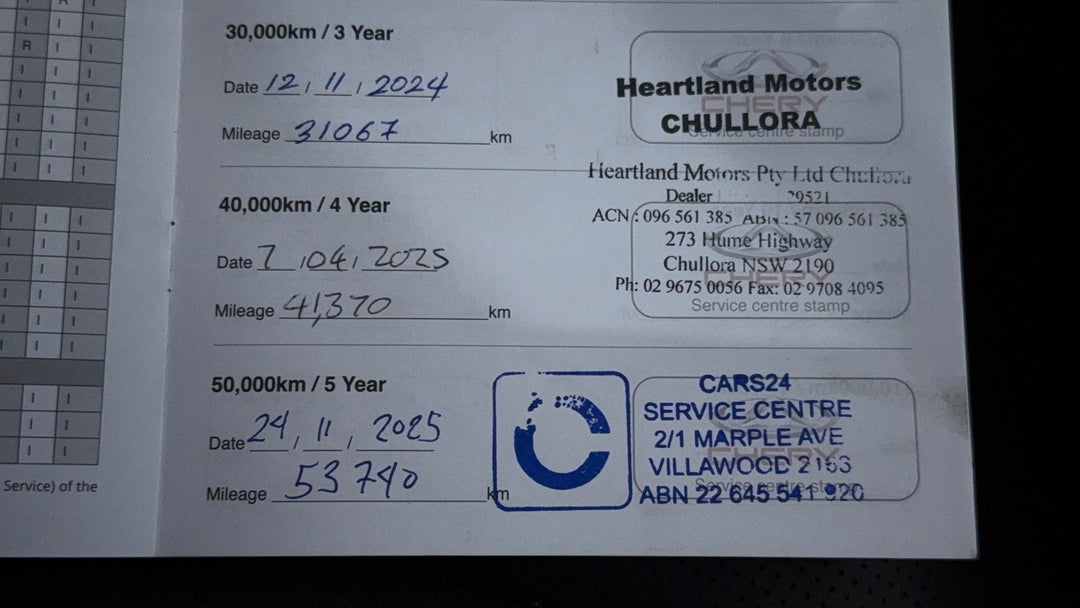 30,000km / 3 Year
Date 12 / 11 / 2024
Mileage 31067 km
CHERY
Service centre stamp
Heartland Motors
CHULLORA
40,000km / 4 Year
Date 7 / 04 / 2025
Mileage 41,370 km
Heartland Motors Pty Ltd Chullora
Dealer 9521
ACN : 096 561 385 ABN : 57 096 561 385
273 Hume Highway
Chullora NSW 2190
Ph: 02 9675 0056 Fax: 02 9708 4095
Service centre stamp
50,000km / 5 Year
Date 24 / 11 / 2025
Mileage 53740 km
CARS24
SERVICE CENTRE
2/1 MARPLE AVE
VILLAWOOD 2163
ABN 22 645 541 920
Service centre stamp
Service) of the
R